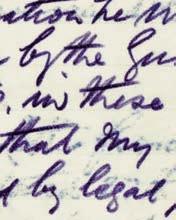 ation he
by the
in these
that my
by legal